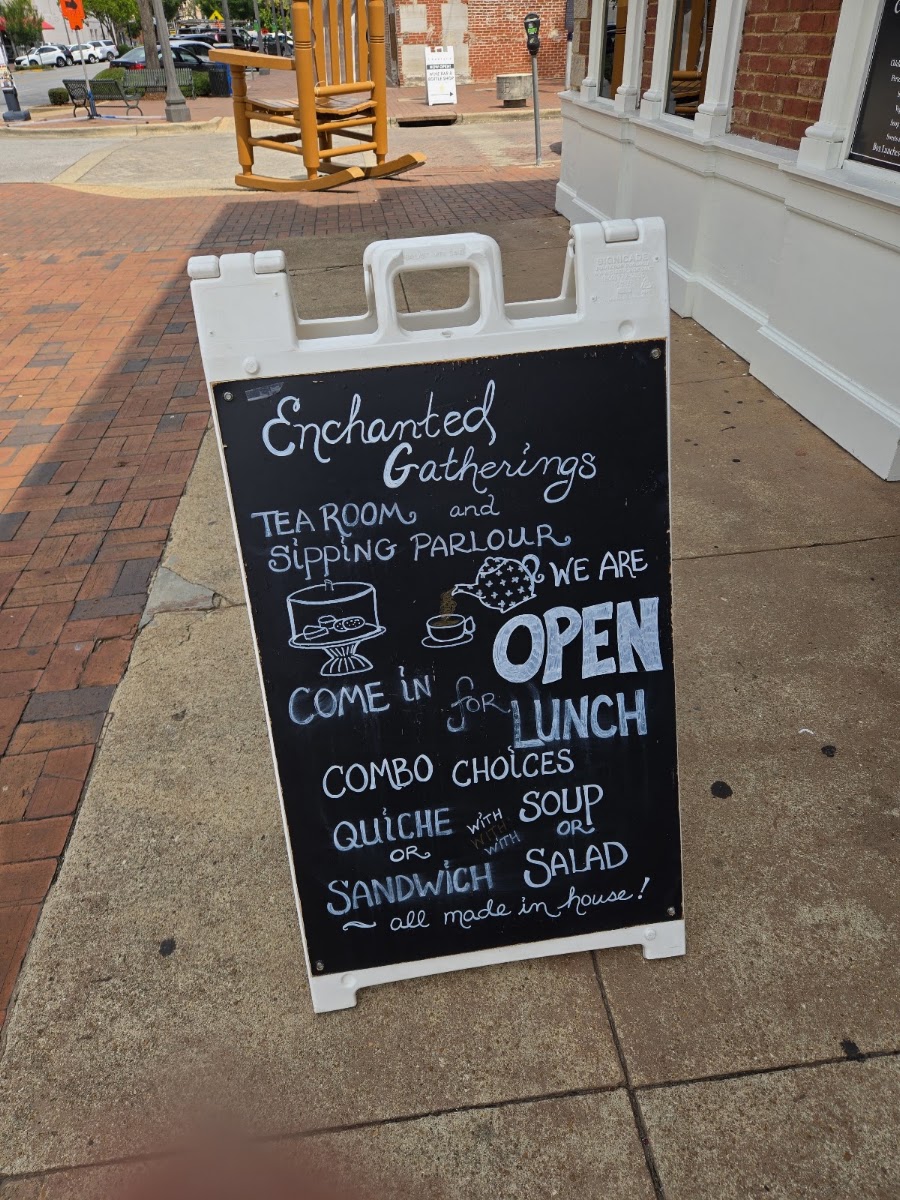 Enchanted
Gatherings
TEA ROOM and
SIPPING PARLOUR
WE ARE
OPEN
COME IN for
LUNCH
COMBO CHOICES
QUICHE WITH SOUP
WITH
WITH
OR OR
SANDWICH SALAD
~ all made in house!
SIGNICADE
NOW OPEN